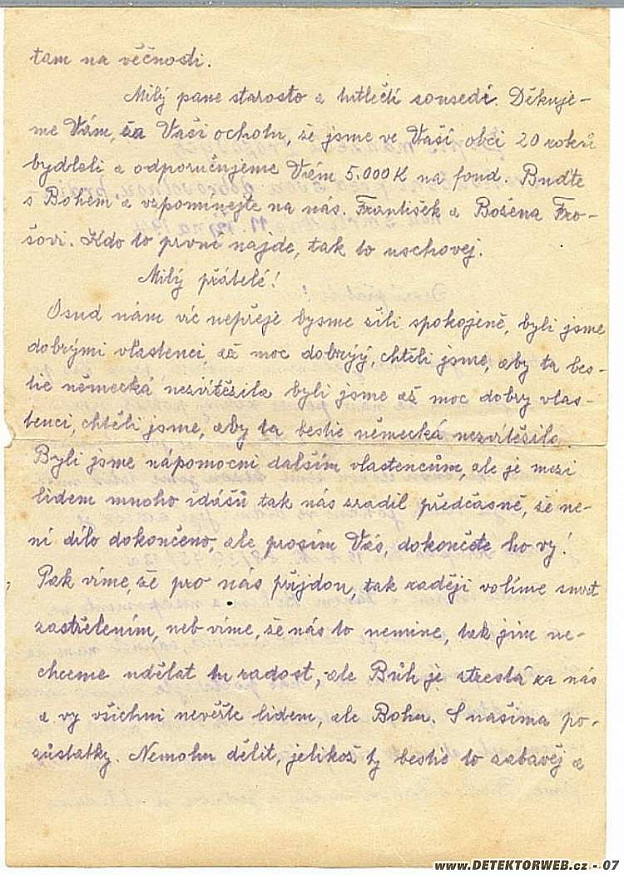 tam na věčnosti.
Milý pane starosto a sousedi. Děkuje-
me Vám, za Vaši ochotu, že jsme ve Vaší obci 20 roků
bydleli a odporučujeme Vám 5.000 K na fond. Buďte
s Bohem a vzpomínejte na nás. František a Božena Fro-
šovi. Kdo to prvně najde, tak to uschovej.
Milý přátelé!
Osud nám víc nepřeje bysme žili spokojeně, byli jsme
dobrými vlastenci, až moc dobrýý, chtěli jsme, aby ta bes-
tie německá nezvítězila byli jsme až moc dobry vlas-
tenci, chtěli jsme, aby ta bestie německá nezvítězila.
Byli jsme nápomocni dalším vlastencům, ale je mezi
lidem mnoho idášů tak nás zradil předčasně, že ne-
ní dílo dokončeno, ale prosím Vás, dokončete ho vy!
Pak víme, že pro nas přijdou, tak raději volíme smrt
zastřelením, neb víme, že nás to nemine, tak jim ne-
chceme udělat tu radost, ale Bůh je strestá za nás
a vy všichni nevěřte lidem, ale Bohu. S našima po-
zůstatky. Nemohu dělit, jelikož ty bestie to zabavěj a
www.DETEKTORWEB.cz - 07